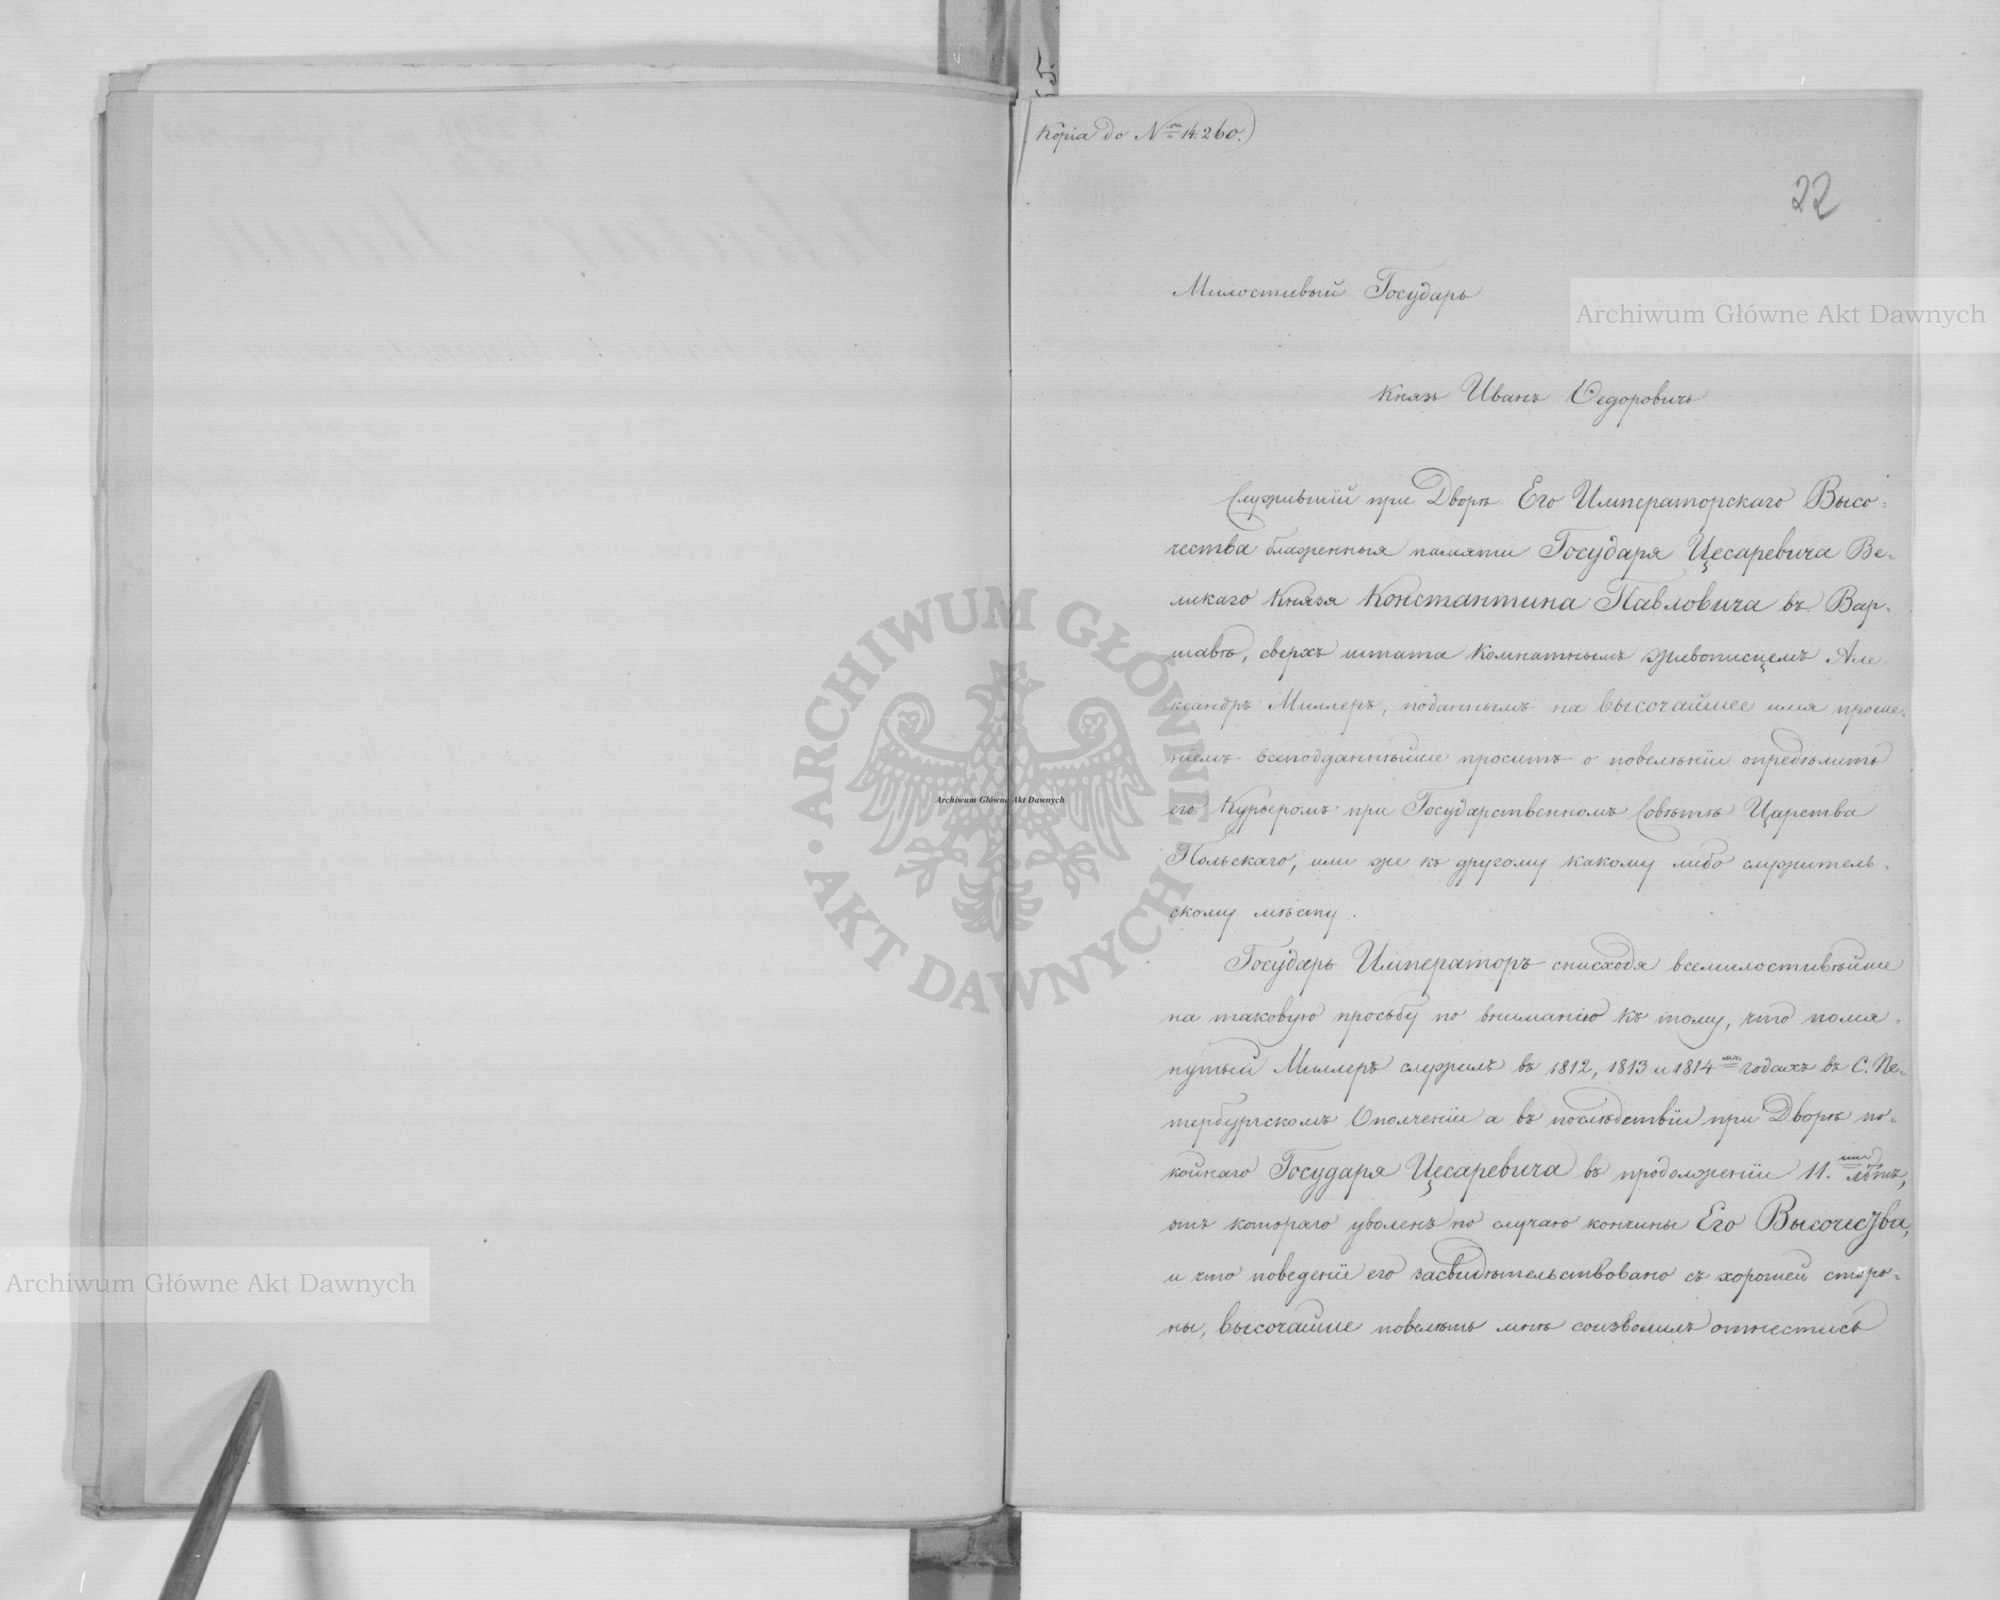 Kopia do Nru 14.260.
22
Милостивый Государь
Князь Иванъ Ѳедоровичь
Служившій при Дворѣ Его Императорскаго Высо-
чества блаженныя памяти Государя Цесаревича Ве-
ликаго Князя Константина Павловича въ Вар-
шавѣ, сверхъ штата Комнатнымъ живописцемъ Але
ксандръ Миллеръ, поданнымъ на Высочайшее имя проше-
ніемъ всеподданнѣйше проситъ о повелѣніи опредѣлить
его Курьеромъ при Государственномъ Совѣтѣ Царства
Польскаго, или же къ другому какому либо служитель-
скому мѣсту.
Государь Императоръ снисходя всемилостивѣйше
на таковую просьбу по вниманію къ тому, что помя-
нутый Миллеръ служилъ въ 1812, 1813 и 1814мъ годахъ въ С. Пе-
тербургскомъ Ополченіи а въ послѣдствіи при Дворѣ по-
койнаго Государя Цесаревича въ продолженіи 11.ти лѣтъ,
отъ котораго уволенъ по случаю кончины Его Высочества,
и что поведеніе его засвидѣтельствовано съ хорошей сторо-
ны, Высочайше повелѣть мнѣ соизволилъ отнестись
Archiwum Główne Akt Dawnych
Archiwum Główne Akt Dawnych
Archiwum Główne Akt Dawnych
ARCHIWUM GŁÓWNE AKT DAWNYCH